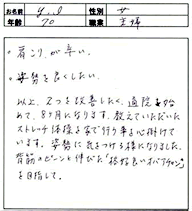 お名前 y...d 性別 女
年齢 70 職業 主婦
・肩こりが辛い。
・姿勢を良くしたい。
以上、2つを改善したく、通院を始
めて、8ヶ月になります。教えていただいた
ストレッチ体操を家で行う事を心掛けて
います。姿勢に気をつける様になりました。
背筋のピーンと伸びた"格好良いオバアチャン"
を目指して。